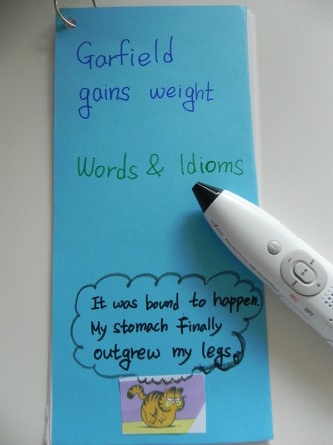 Garfield
gains weight
Words & Idioms
It was bound to happen.
My stomach Finally
outgrew my legs.